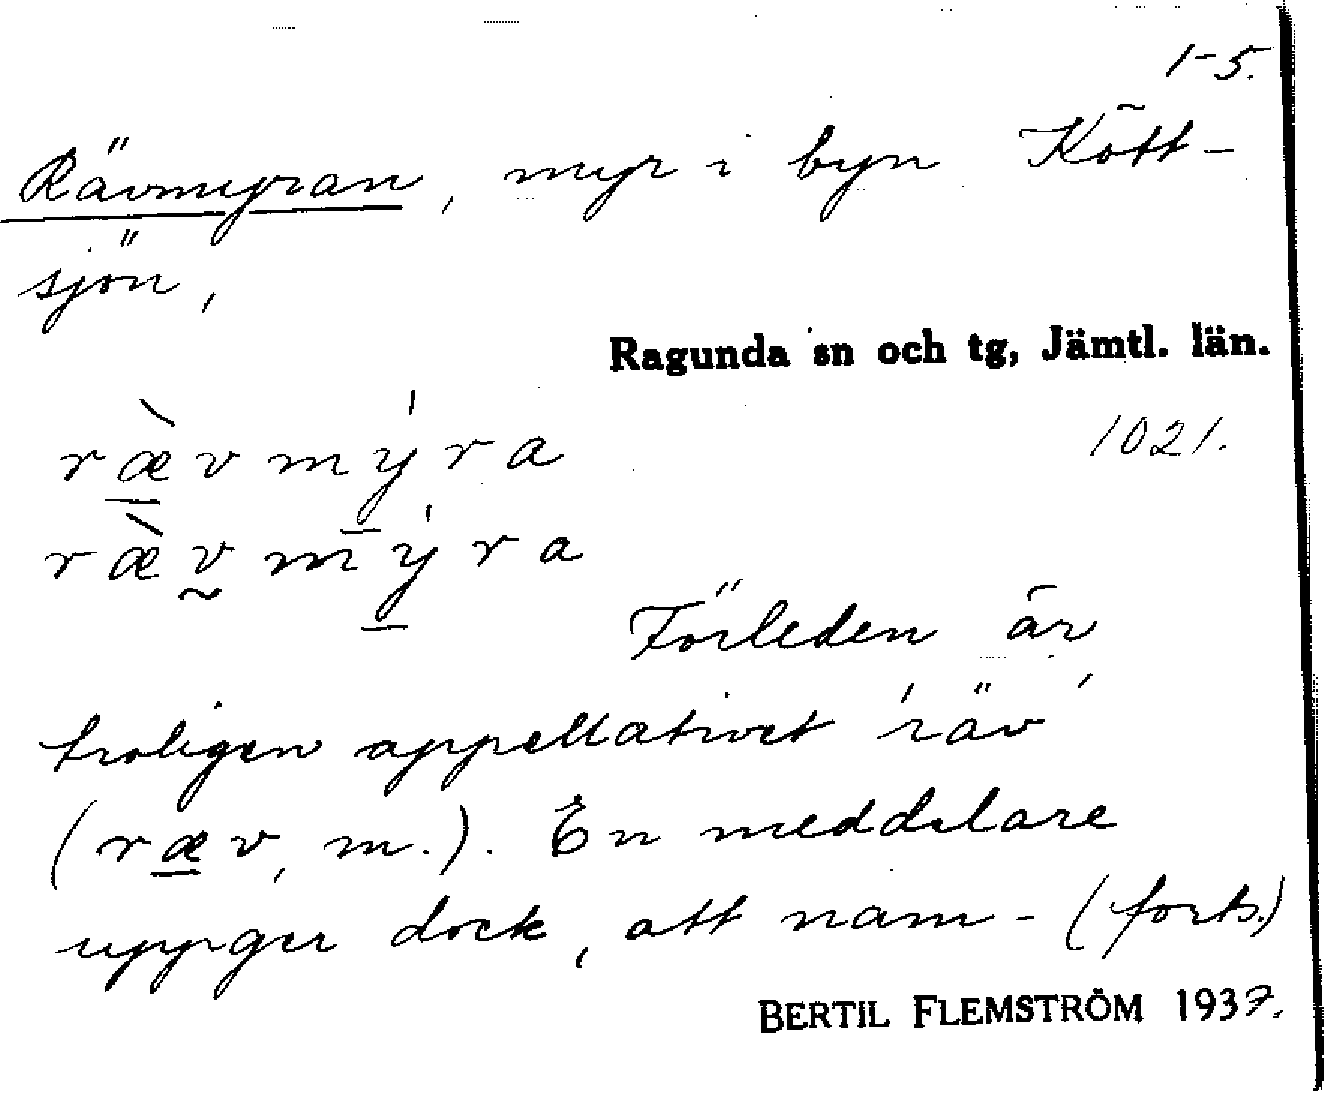 1-5.
Rävmyran, myr i byn Kött-
sjön,
Ragunda sn och tg, Jämtl. län.
1021.
ræ̲̀vmý̲ra
ræ̀v̰mý̲ra
Förleden är
troligen appellativet 'räv'
(ræ̲v, m.). En meddelare
uppger dock, att nam- (forts.)
BERTIL FLEMSTRÖM 1937.